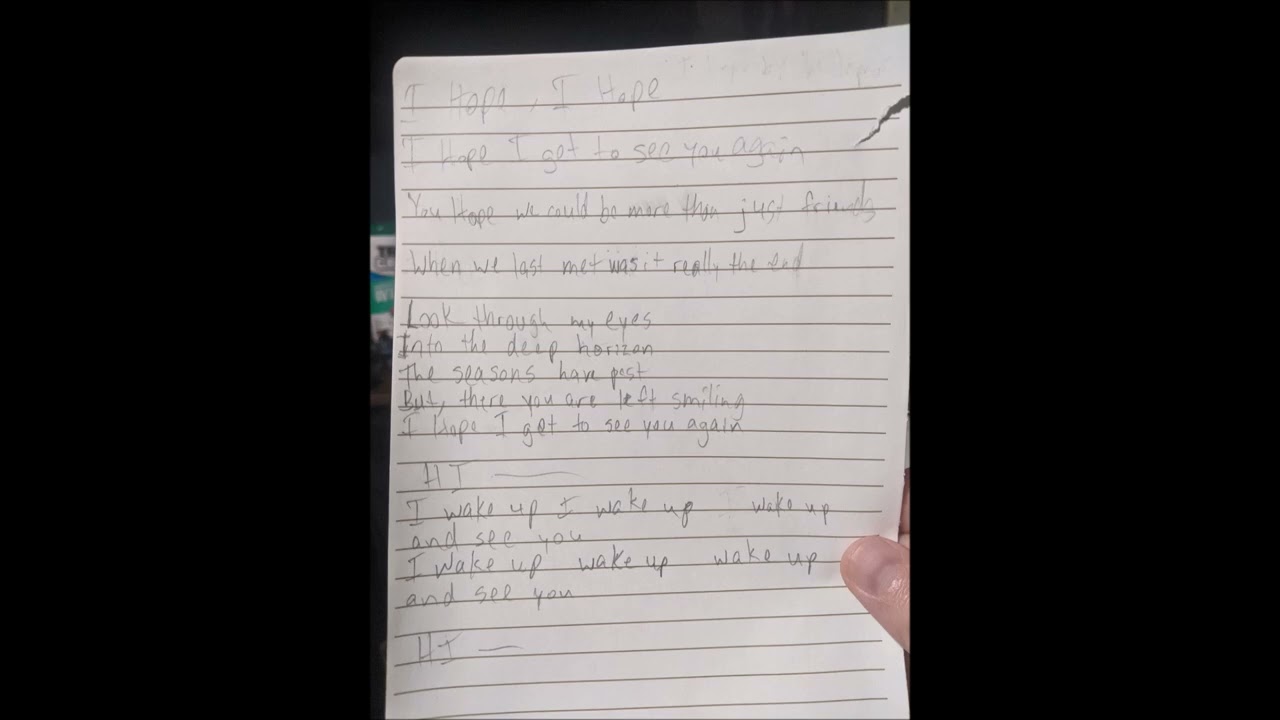 I Hope, I Hope
I Hope I get to see you again
You Hope we could be more than just friends
When we last met was it really the end
Look through my eyes
Into the deep horizon
The seasons have past
But, there you are left smiling
I Hope I get to see you again
HI
I wake up I wake up I wake up
and see you
I wake up wake up wake up
and see you
HI